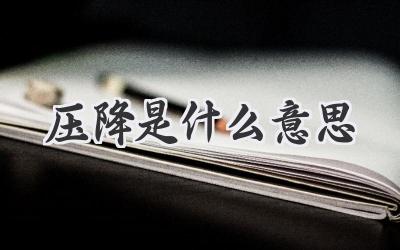 压降是什么意思